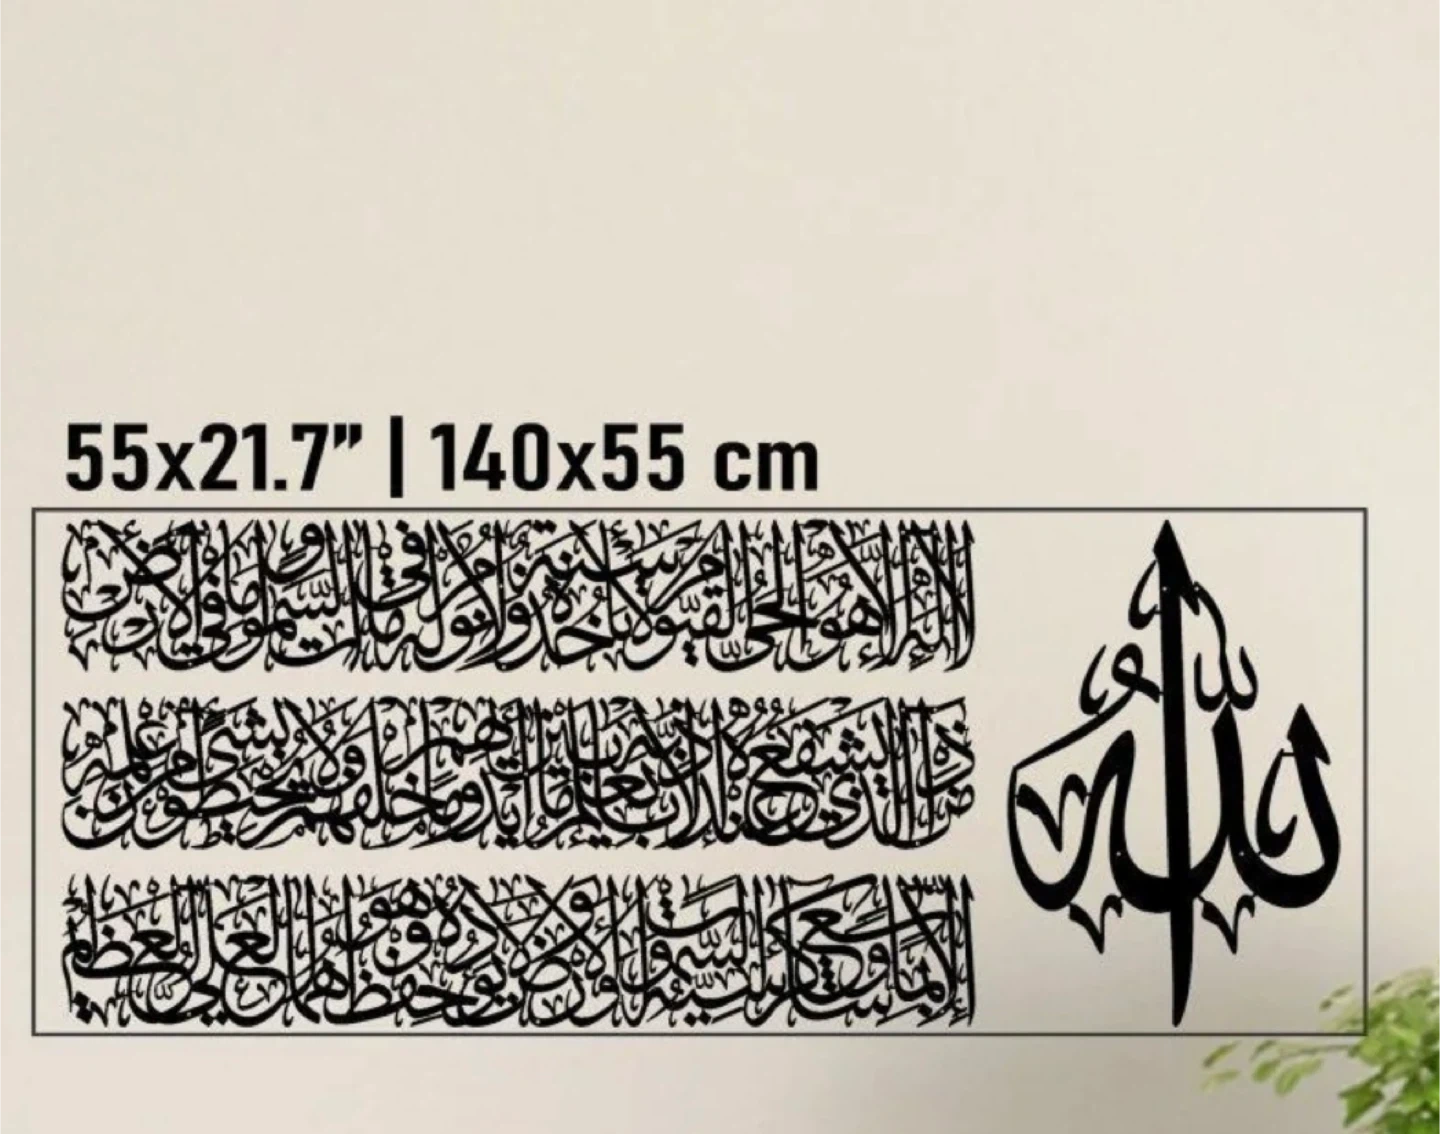 55x21.7” | 140x55 cm
الله لا إله إلا هو الحي القيوم لا تأخذه سنة ولا نوم له ما في السموات وما في الأرض
من ذا الذي يشفع عنده إلا بإذنه يعلم ما بين أيديهم وما خلفهم ولا يحيطون بشيء من علمه
إلا بما شاء وسع كرسيه السموات والأرض ولا يؤده حفظهما وهو العلي العظيم
الله